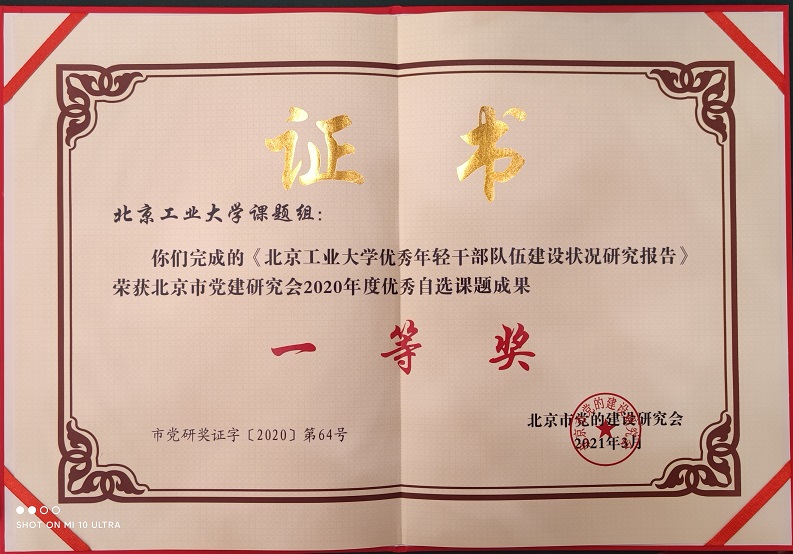 证 书
北京工业大学课题组：
你们完成的《北京工业大学优秀年轻干部队伍建设状况研究报告》
荣获北京市党建研究会2020年度优秀自选课题成果
一 等 奖
市党研奖证字〔2020〕第64号
北京市党的建设研究会
2021年3月
北京市党的建设研究会
SHOT ON MI 10 ULTRA